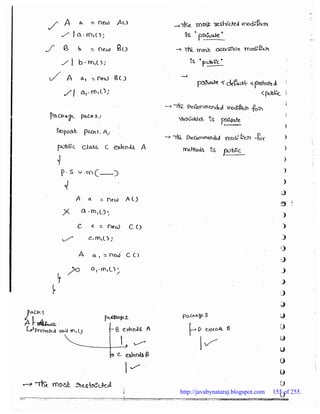 ✓ A a = new A()
✓ | a.m1();
✓ B b = new B()
✓ | b.m1();
✓ A a1 = new B();
✓ | a1.m1();
→ The most restricted modifier is "private"
→ The most accessible modifier is "public"
→ private < default < protected < public
→ The Recommended modifier for variables is private
→ The Recommended modifier for methods is public
package pack2;
import pack1.A;
public class C extends A
{
p.s.v.m(—)
{
A a = new A()
✗ a.m1();
C c = new C()
✓ c.m1();
A a1 = new C()
✗ a1.m1();
}
}
pack1
A
protected void m1()
package2
B extends A
C extends B
package3
D extends B
→ The most restricted
http://javabynataraj.blogspot.com 151 of 255.